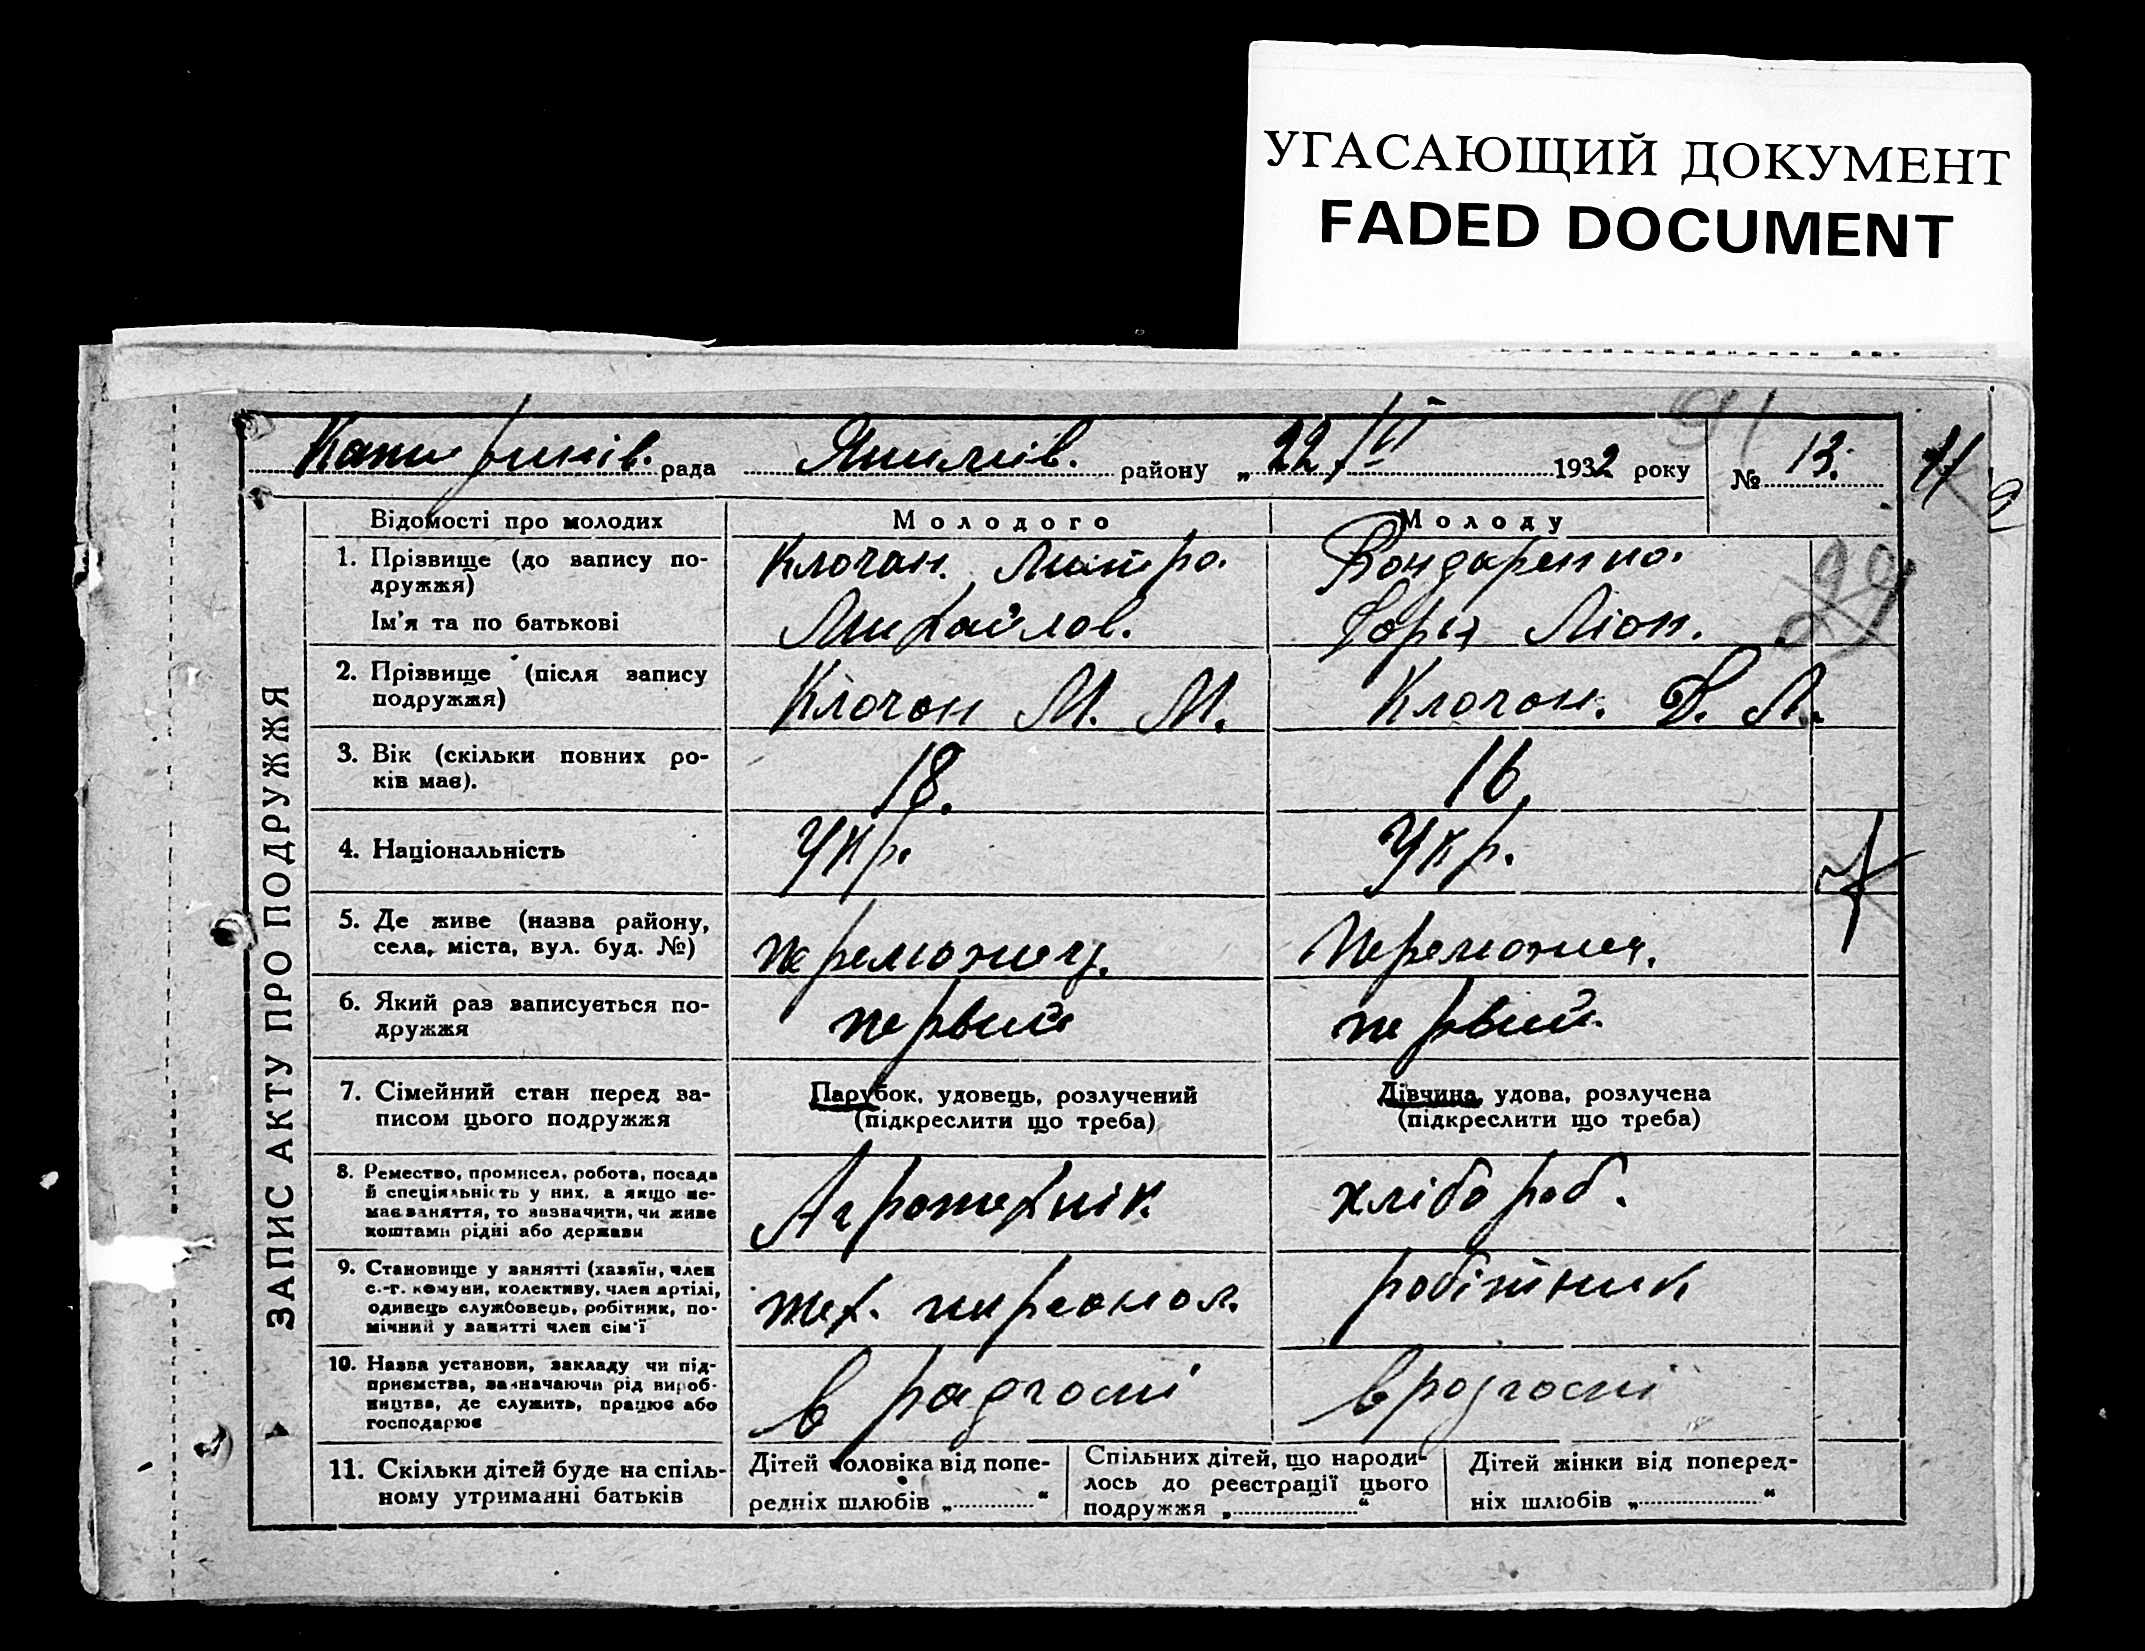 УГАСАЮЩИЙ ДОКУМЕНТ
FADED DOCUMENT
91
рада району „22/VI 1932 року № 13. 
ЗАПИС АКТУ ПРО ПОДРУЖЖЯ
Відомості про молодих Молодого Молоду
1. Прізвище (до запису по-
дружжя)
Клочан. Митро. Бондаренко.
Ім'я та по батькові
Михайлов. Дорія Ліон.
29
2. Прізвище (після запису
подружжя)
Клочан М. М. Клочан. Д. Л.
3. Вік (скільки повних ро-
ків має).
18. 16.
4. Національність Укр. Укр.
5. Де живе (назва району,
села, міста, вул. буд. №)
6. Який раз записується по-
дружжя
первий первий.
7. Сімейний стан перед за-
писом цього подружжя
Парубок, удовець, розлучений
(підкреслити що треба)
Дівчина, удова, розлучена
(підкреслити що треба)
8. Ремество, промисел, робота, посада
й спеціяльність у них, а якщо не-
має заняття, то зазначити, чи живе
коштами рідні або держави
Агротехнік. хлібороб.
9. Становище у занятті (хазяїн, член
с.-г. комуни, колективу, член артілі,
одинець службовець, робітник, по-
мічний у занятті член сім'ї
тех. робітник
10. Назва установи, закладу чи під-
приємства, зазначаючи рід вироб-
ництва, де служить, працює або
господарює
в радгоспі в радгоспі
11. Скільки дітей буде на спіль-
ному утриманні батьків
Дітей чоловіка від попе-
редніх шлюбів „ “
Спільних дітей, що народи-
лось до реєстрації цього
подружжя „ “
Дітей жінки від поперед-
ніх шлюбів „ “